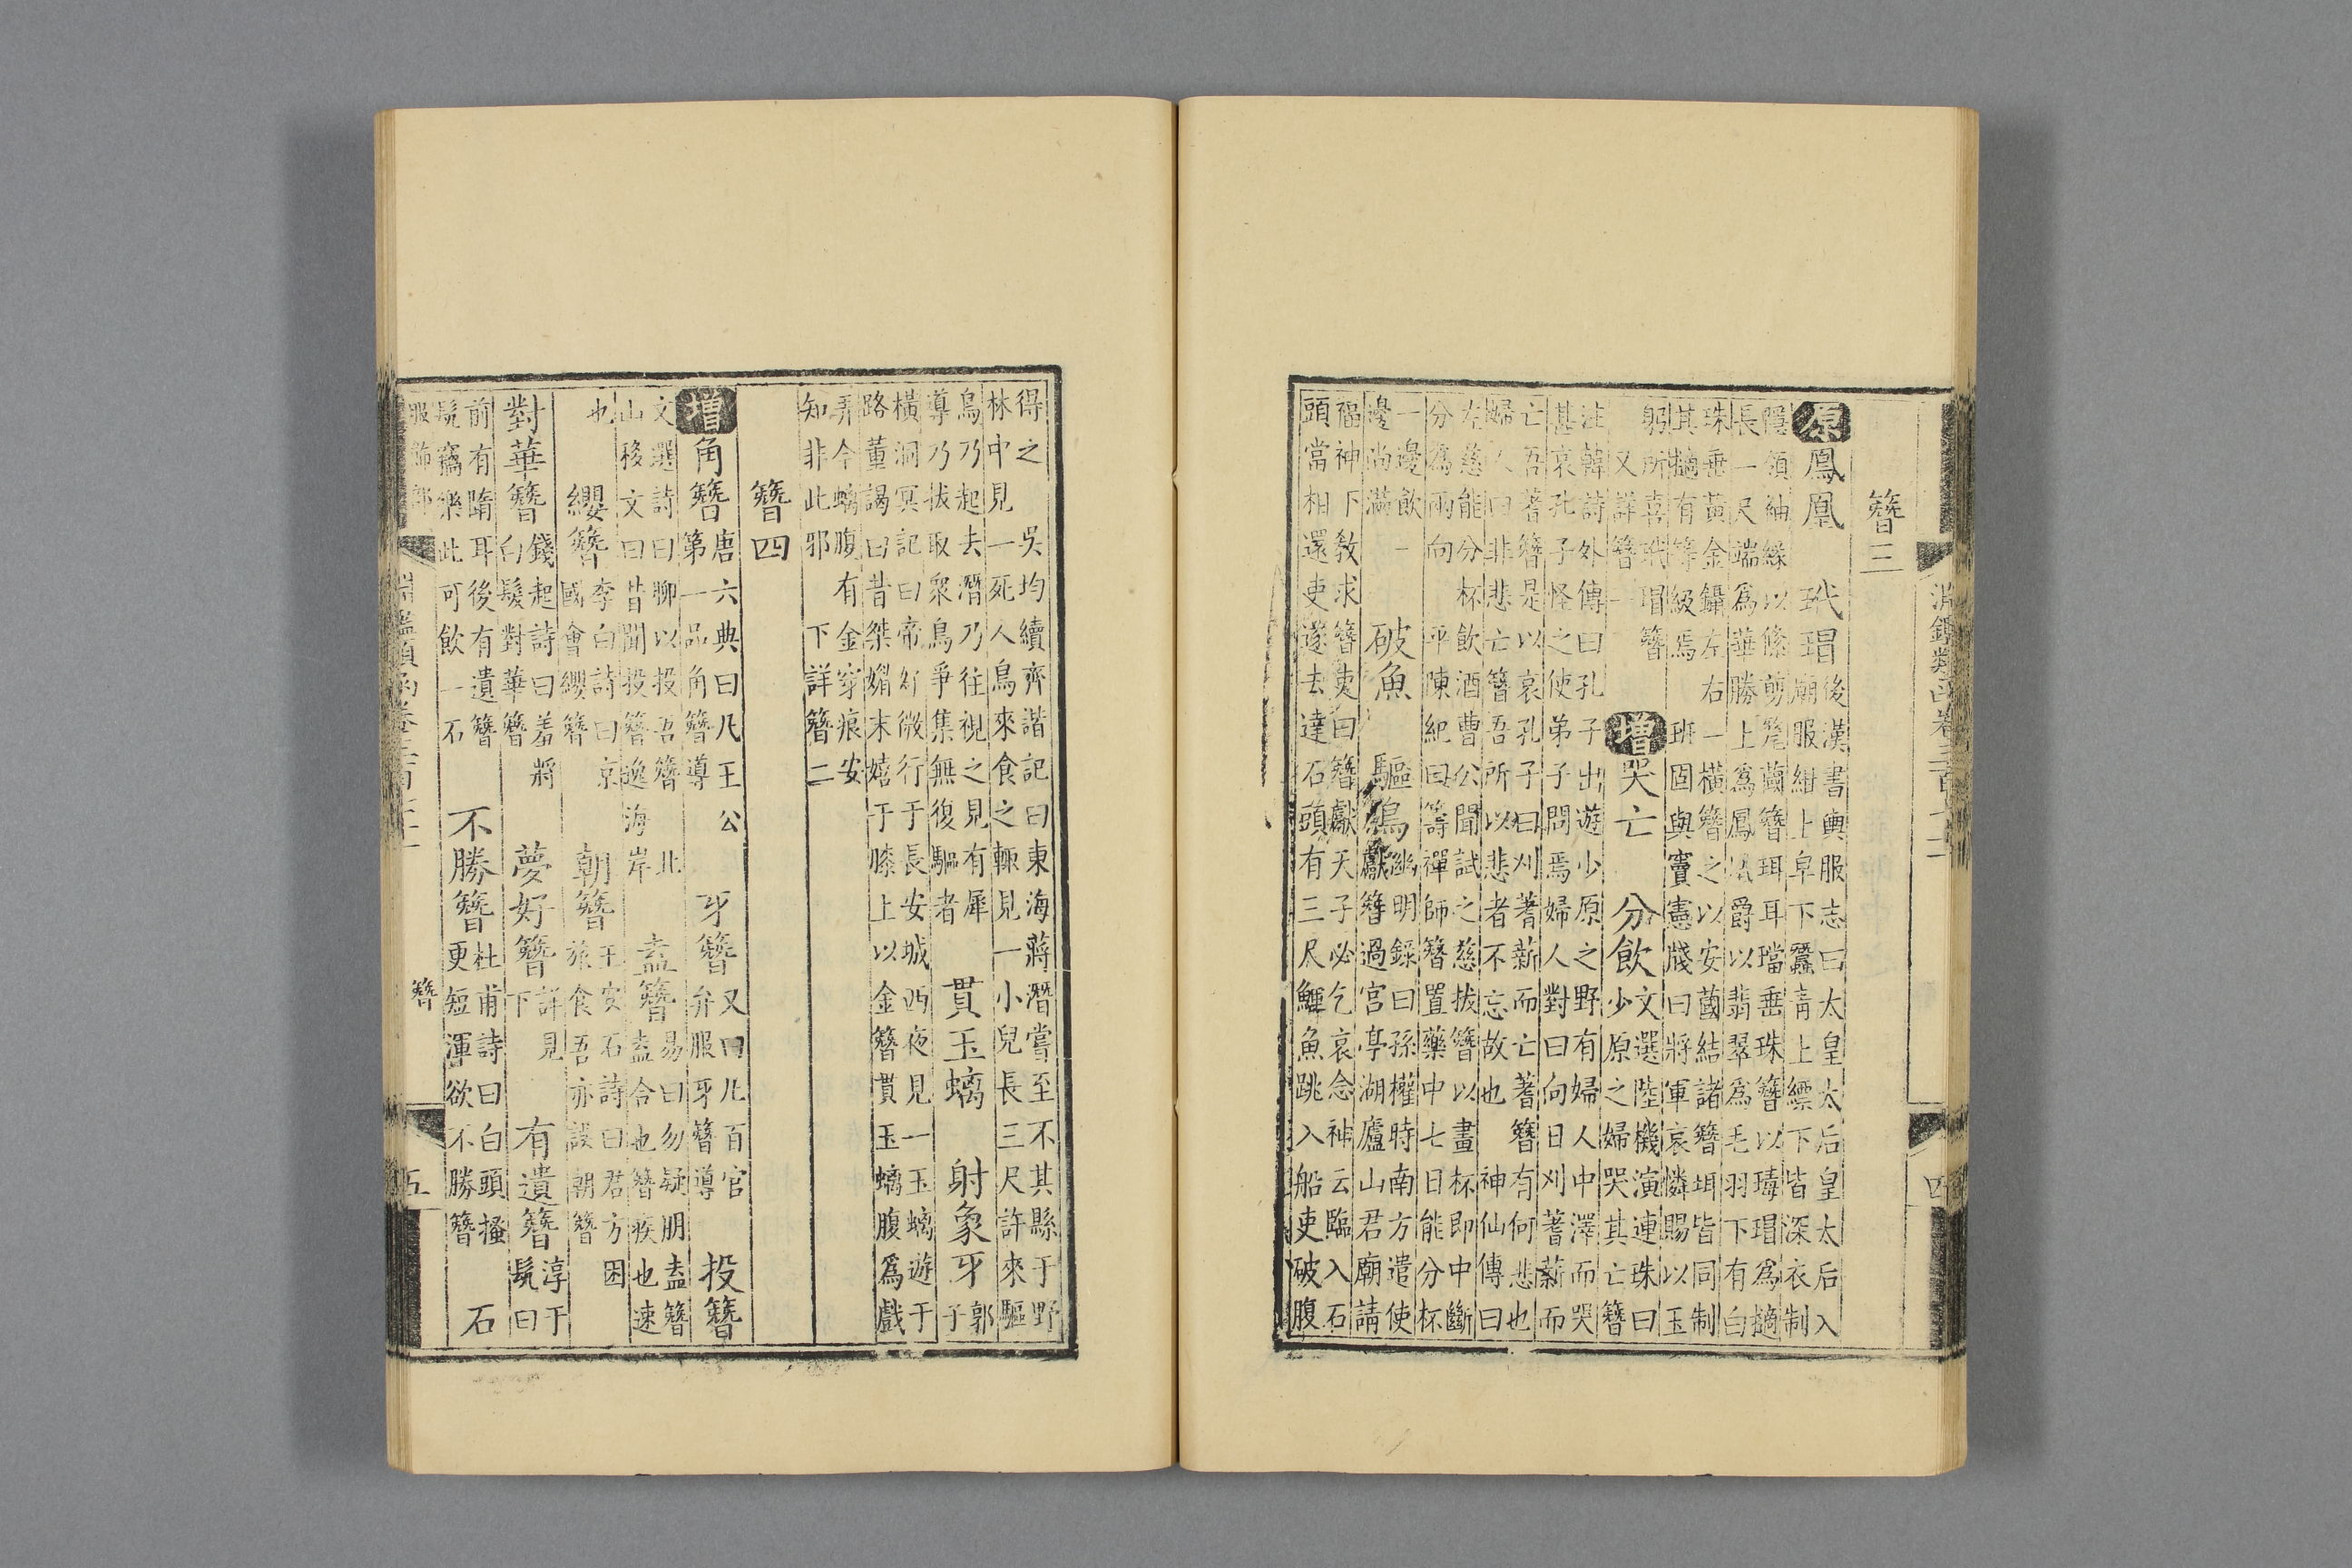 簪三
原鳳凰 玳瑁 後漢書輿服志曰太皇太后皇太后入
廟服紺上皁下蠶靑上縹下皆深衣制
隱領紬緣以絛剪氂蔮簪珥耳璫垂珠簪以瑇瑁爲擿
長一尺端爲華勝上爲鳳凰爵以翡翠爲毛羽下有白
珠垂黃金鑷左右一橫簪之以安蔮結諸簪珥皆同制
其擿有等級焉 班固與竇憲牋曰將軍哀憐賜以玉
躬所喜玳瑁簪
又詳簪一
增哭亡 分飲 文選陸機演連珠曰
少原之婦哭其亡簪
注韓詩外傳曰孔子出遊少原之野有婦人中澤而哭
甚哀孔子怪之使弟子問焉婦人對曰向日刈蓍薪而
亡吾蓍簪是以哀孔子曰刈蓍薪而亡蓍簪有何悲也
婦人曰非悲亡簪吾所以悲者不忘故也 神仙傳曰
左慈能分杯飲酒曹公聞試之慈拔簪以畫杯即中斷
分爲兩向 平陳紀曰籌禪師簪置藥中七日能分杯
一邊飲一
邊尚滿
破魚 驅鳥 幽明錄曰孫權時南方遣使
獻簪過宮亭湖廬山君廟請
福神下敎求簪吏曰簪獻天子必乞哀念神云臨入石
頭當相還吏遂去達石頭有三尺鯉魚跳入船吏破腹
淵鑑類函卷三百七十二
四
得之 吳均續齊諧記曰東海蔣潛嘗至不其縣于野
林中見一死人鳥來食之輒見一小兒長三尺許來驅
鳥乃起去潛乃往視之見有犀
導乃拔取衆鳥爭集無復驅者
貫玉螭 射象牙 郭
子
橫洞冥記曰帝好微行于長安城西夜見一玉螭遊于
路董謁曰昔桀媚末嬉于膝上以金簪貫玉螭腹爲戲
弄今螭腹有金穿痕安
知非此邪 下詳簪二
簪四
增角簪 唐六典曰凡王公
第一品角簪導
牙簪 又曰凡百官
弁服牙簪導
投簪
文選詩曰聊以投吾簪 北
山移文曰昔聞投簪逸海岸
盍簪 易曰勿疑朋盍簪
盍合也簪疾也速
也
纓簪 李白詩曰京
國會纓簪
朝簪 王安石詩曰君方困
旅食吾亦誤朝簪
對華簪 錢起詩曰羞將
白髮對華簪
夢好簪 詳見
下
有遺簪 淳于
髠曰
前有墮耳後有遺簪
髠竊樂此可飲一石
不勝簪 杜甫詩曰白頭搔
更短渾欲不勝簪
石
服飾部
淵鑑類函卷三百七十二
簪
五